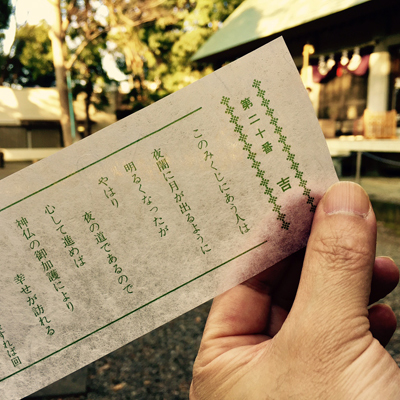 第二十番 吉
このみくじにあう人は
夜闇に月が出るように
明るくなったが
やはり
夜の道であるので
心して進めば
神仏の御加護により
幸せが訪れる